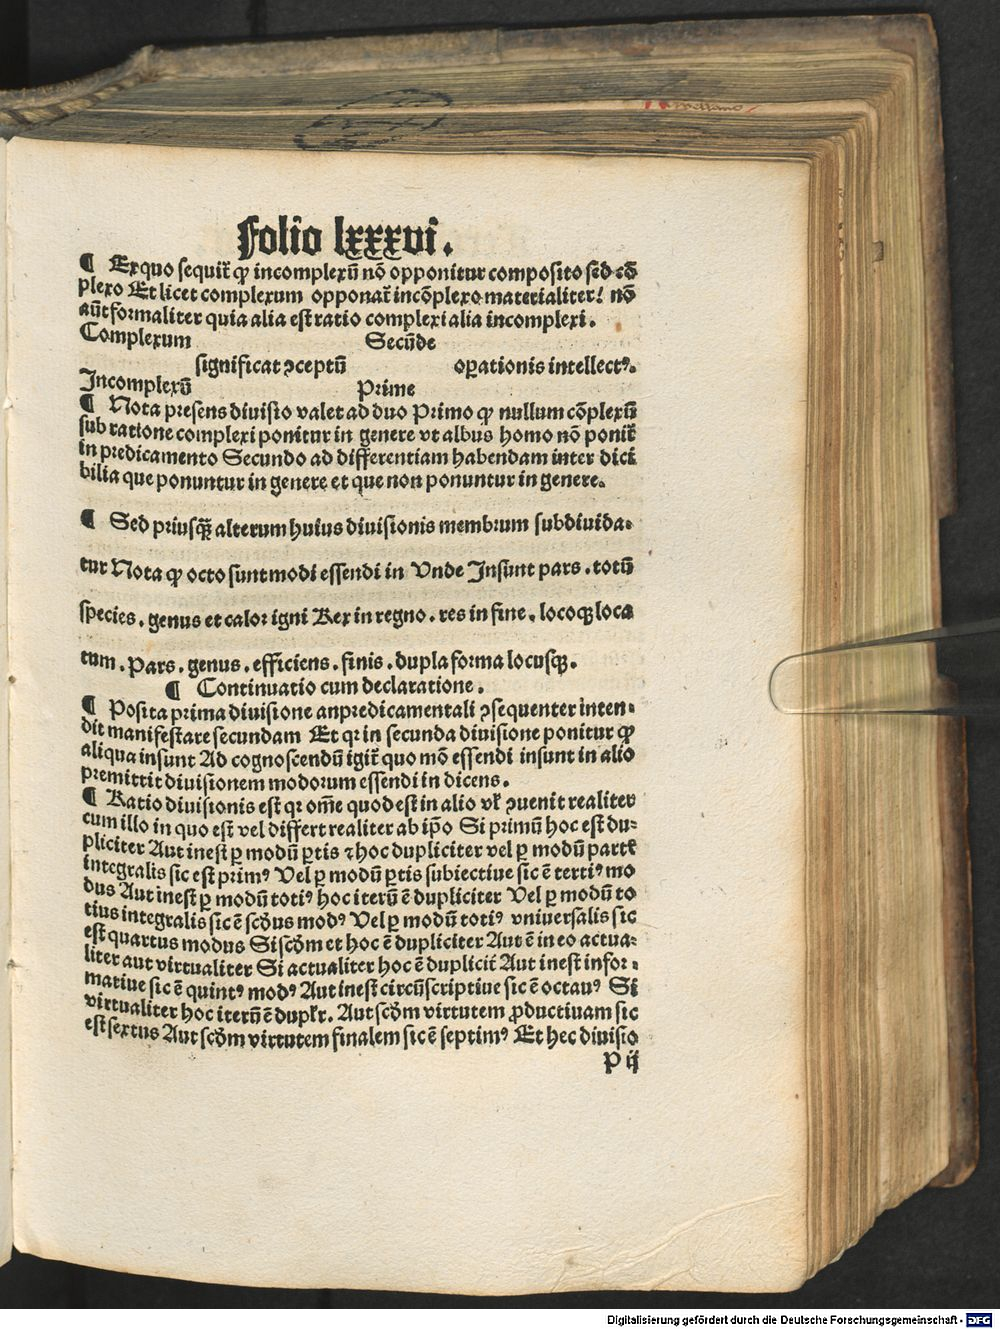 Folio lxxxvi.
¶ Ex quo sequit̃ ꝙ incomplexū nō opponitur composito sed cō
plexo Et licet complexum opponat̃ incōplexo materialiter: nō
aūt formaliter quia alia est ratio complexi alia incomplexi.
Complexum Secūde
significat ɔceptū oꝑationis intellectꝰ.
Incomplexū Prime
¶ Nota presens diuisio valet ad duo Primo ꝙ nullum cōplexū
sub ratione complexi ponitur in genere vt albus homo nō ponit̃
in predicamento Secundo ad differentiam habendam inter dici
bilia que ponuntur in genere et que non ponuntur in genere.
¶ Sed priusꝗ̃ alterum huius diuisionis membrum subdiuida⸗
tur Nota ꝙ octo sunt modi essendi in Unde Insunt pars. totū
species. genus et calor igni Rex in regno. res in fine. locoqꝫ loca
tum. Pars. genus. efficiens. finis. dupla forma locusqꝫ.
¶ Continuatio cum declaratione.
¶ Posita prima diuisione anpredicamentali ɔsequenter inten⸗
dit manifestare secundam Et qꝛ in secunda diuisione ponitur ꝙ
aliqua insunt Ad cognoscendū igit̃ quo mō essendi insunt in alio
premittit diuisionem modorum essendi in dicens.
¶ Ratio diuisionis est qꝛ om̄e quod est in alio vl̓ ɔuenit realiter
cum illo in quo est vel differt realiter ab ip̄o Si primū hoc est du⸗
pliciter Aut inest ꝑ modū ꝑtis ⁊ hoc dupliciter vel ꝑ modū part̃
integralis sic est primꝰ Vel ꝑ modū ꝑtis subiectiue sic ē tertiꝰ mo
dus Aut inest ꝑ modū totiꝰ hoc iterū ē dupliciter Vel ꝑ modū to
tius integralis sic ē scd̓us modꝰ Vel ꝑ modū totiꝰ vniuersalis sic
est quartus modus Si scd̓m et hoc ē dupliciter Aut ē in eo actua⸗
liter aut virtualiter Si actualiter hoc ē duplicit̃ Aut inest infor⸗
matiue sic ē quintꝰ modꝰ Aut inest circūscriptiue sic ē octauꝰ Si
virtualiter hoc iterū ē dupl̓r. Aut scd̓m virtutem ꝓductiuam sic
est sextus Aut scd̓m virtutem finalem sic ē septimꝰ Et hec diuisio
P ij
Digitalisierung gefördert durch die Deutsche Forschungsgemeinschaft - DFG